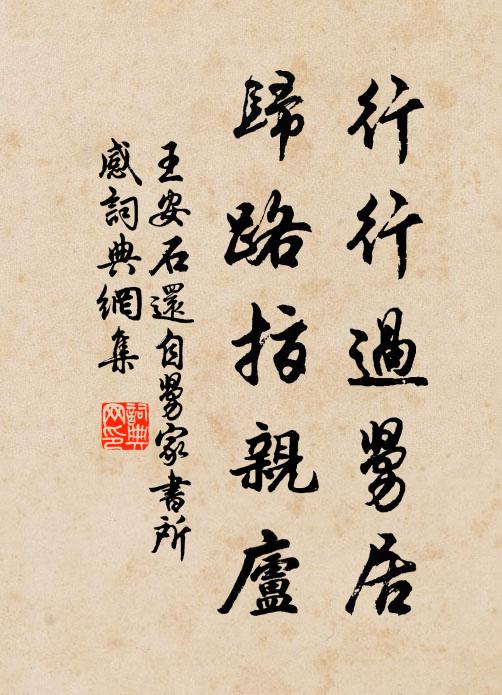 行行過舅居
歸路指親廬
王安石還自舅家書所
感詞典網集
詞典
网印